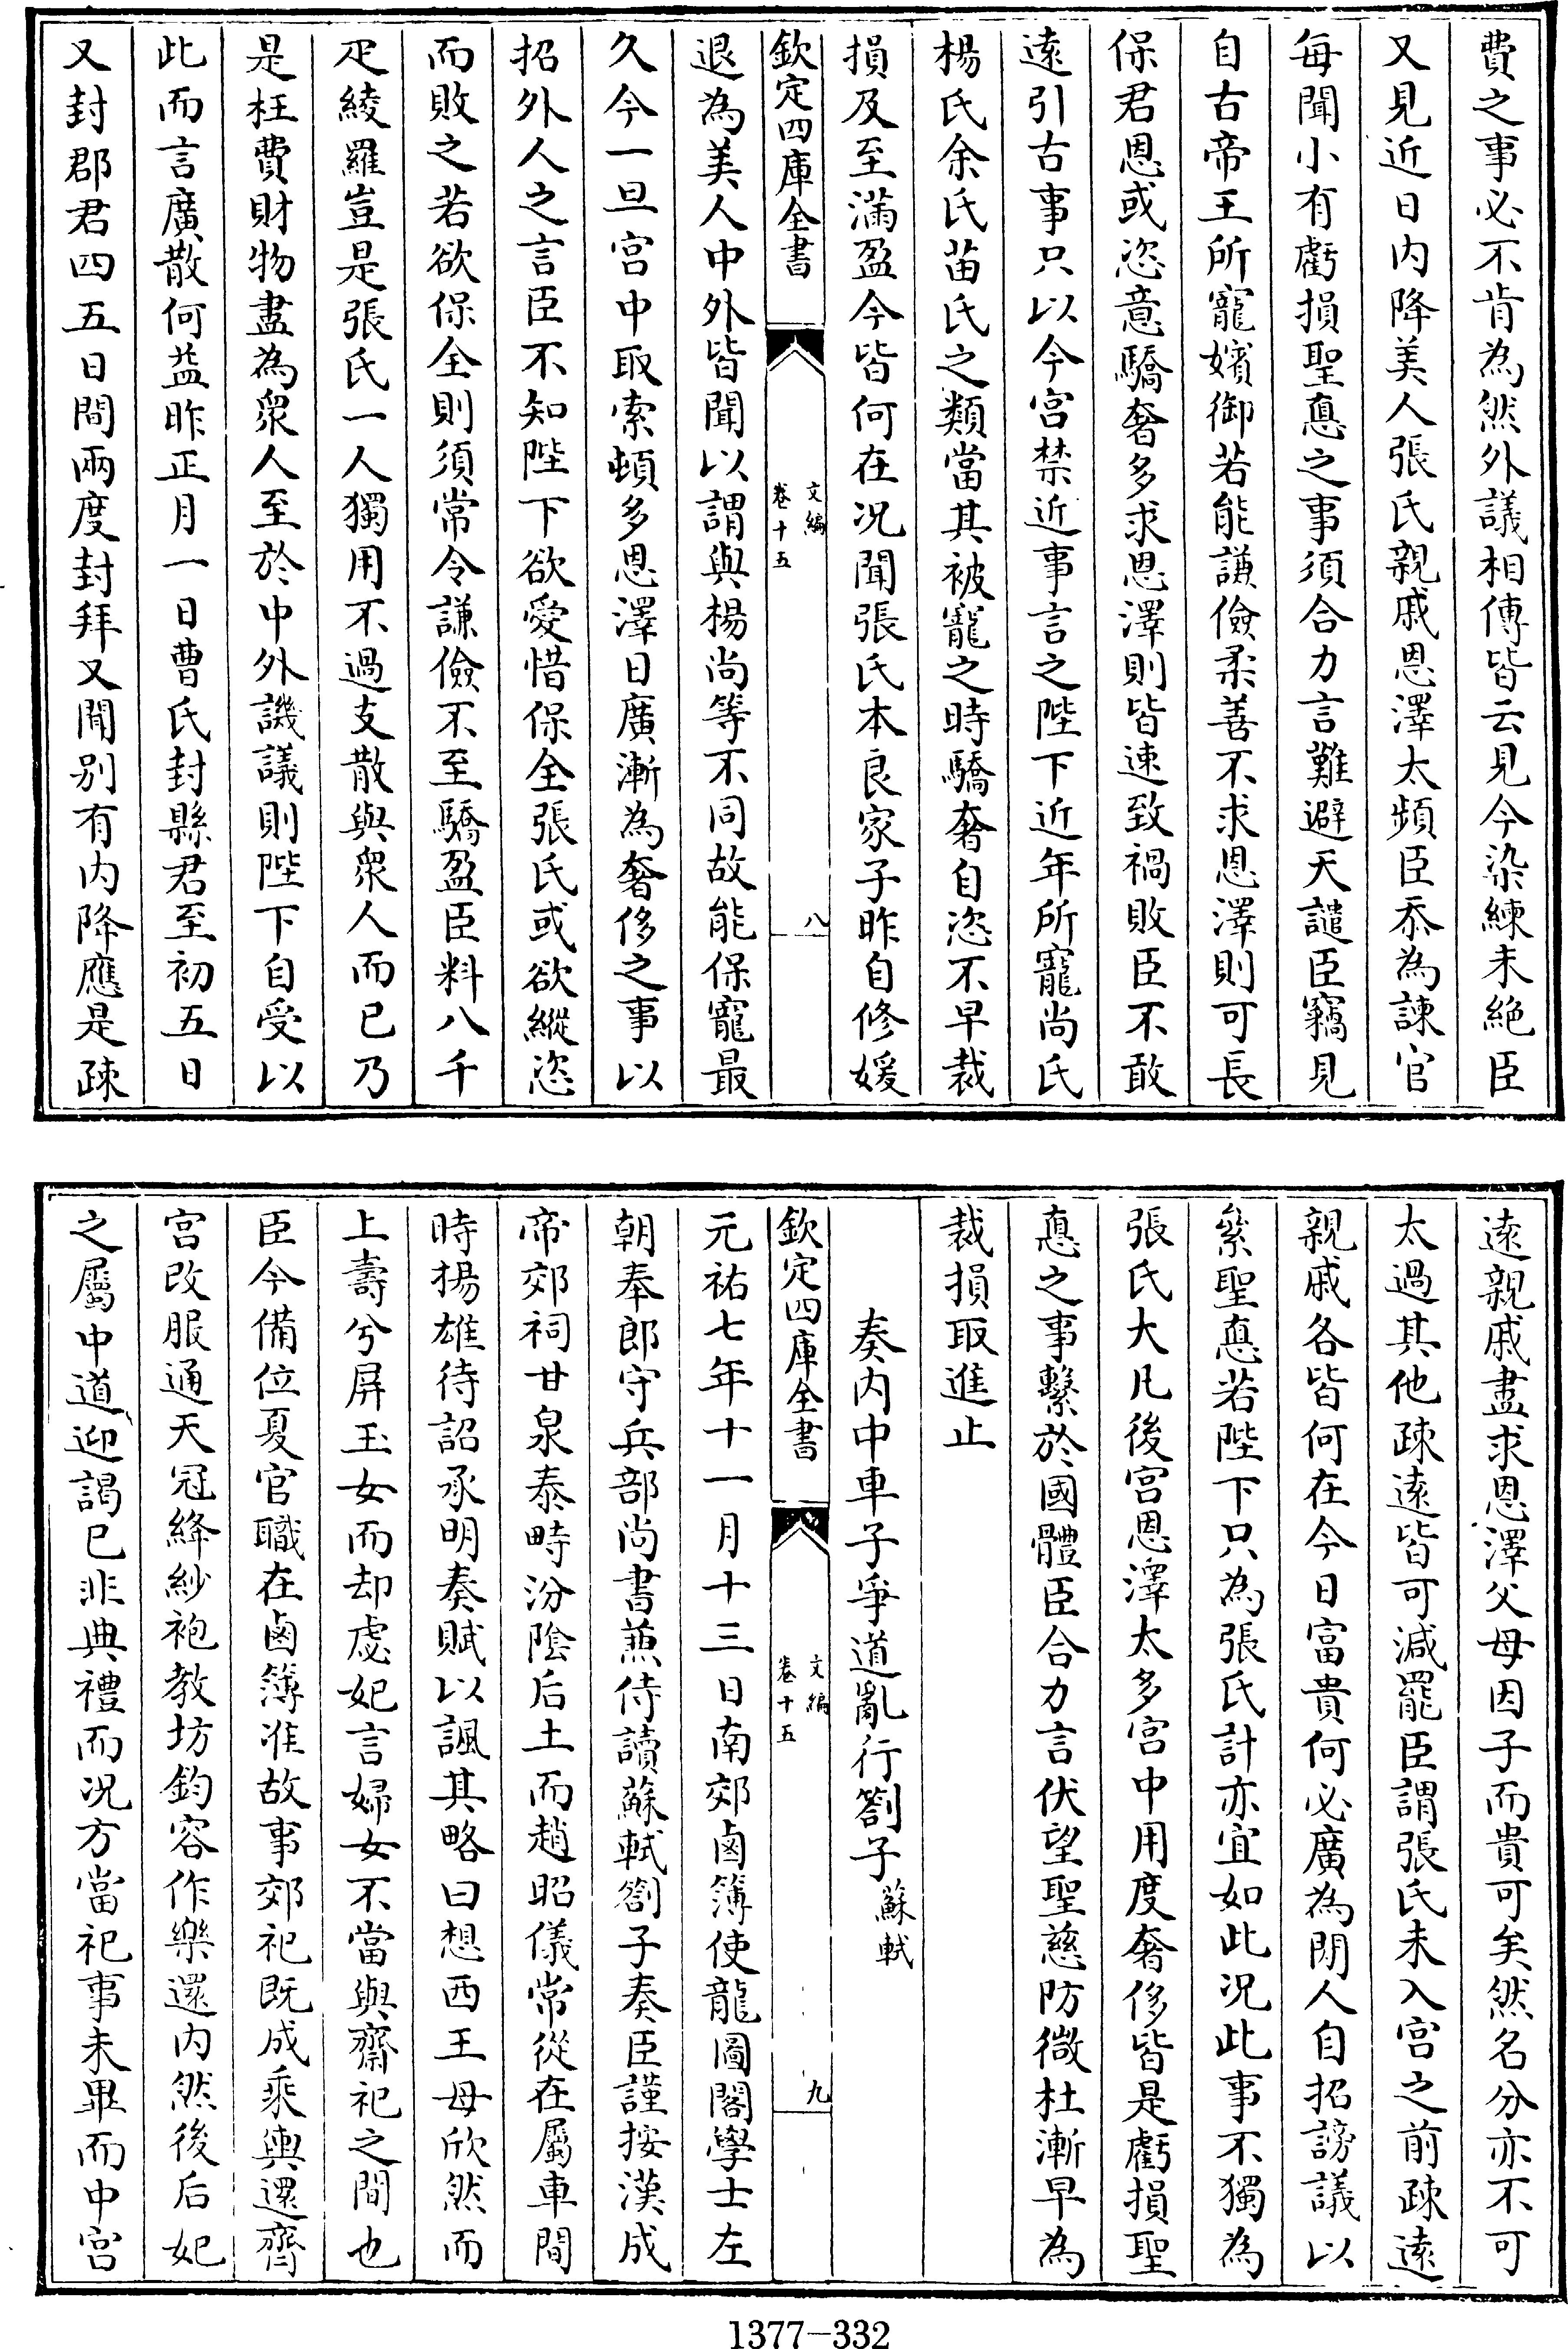 費之事必不肯為然外議相傳皆云見今染練未絕臣
又見近日内降美人張氏親戚恩澤太頻臣忝為諫官
每聞小有虧損聖悳之事須合力言難避天譴臣竊見
自古帝王所寵嬪御若能謙儉柔善不求恩澤則可長
保君恩或恣意驕奢多求恩澤則皆速致禍敗臣不敢
遠引古事只以今宫禁近事言之陛下近年所寵尚氏
楊氏余氏苗氏之類當其被寵之時驕奢自恣不早裁
損及至滿盈今皆何在况聞張氏本良家子昨自修媛
欽定四庫全書
文編
卷十五
八
退為美人中外皆聞以謂與楊尚等不同故能保寵最
久今一旦宫中取索頓多恩澤日廣漸為奢侈之事以
招外人之言臣不知陛下欲愛惜保全張氏或欲縱恣
而敗之若欲保全則須常令謙儉不至驕盈臣料八千
疋綾羅豈是張氏一人獨用不過支散與衆人而已乃
是枉費財物盡為衆人至於中外譏議則陛下自受以
此而言廣散何益昨正月一日曹氏封縣君至初五日
又封郡君四五日間兩度封拜又聞别有内降應是疎
遠親戚盡求恩澤父母因子而貴可矣然名分亦不可
太過其他疎遠皆可減罷臣謂張氏未入宫之前疎遠
親戚各皆何在今日富貴何必廣為閒人自招謗議以
纍聖悳若陛下只為張氏計亦宜如此况此事不獨為
張氏大凡後宫恩澤太多宫中用度奢侈皆是虧損聖
悳之事繫於國體臣合力言伏望聖慈防微杜漸早為
裁損取進止
奏内中車子爭道亂行劄子蘇軾
欽定四庫全書
文編
卷十五
九
元祐七年十一月十三日南郊鹵簿使龍圖閣學士左
朝奉郎守兵部尚書兼侍讀蘇軾劄子奏臣謹按漢成
帝郊祠甘泉泰畤汾陰后土而趙昭儀常從在屬車間
時揚雄待詔承明奏賦以諷其略曰想西王母欣然而
上壽兮屏玉女而却虙妃言婦女不當與齋祀之間也
臣今備位夏官職在鹵簿准故事郊祀既成乘輿還齋
宫改服通天冠絳紗袍教坊鈞容作樂還内然後后妃
之屬中道迎謁已非典禮而况方當祀事未畢而中宫
1377-332